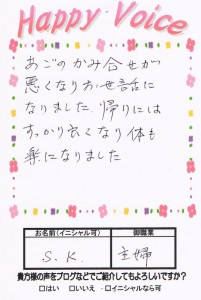 Happy Voice
あごのかみ合せが
悪くなりお世話に
なりました。帰りには
すっかり良くなり体も
楽になりました
お名前(イニシャル可) 御職業
S.K. 主婦
貴方様の声をブログなどでご紹介してもよろしいですか?
□はい □いいえ ・□イニシャルなら可